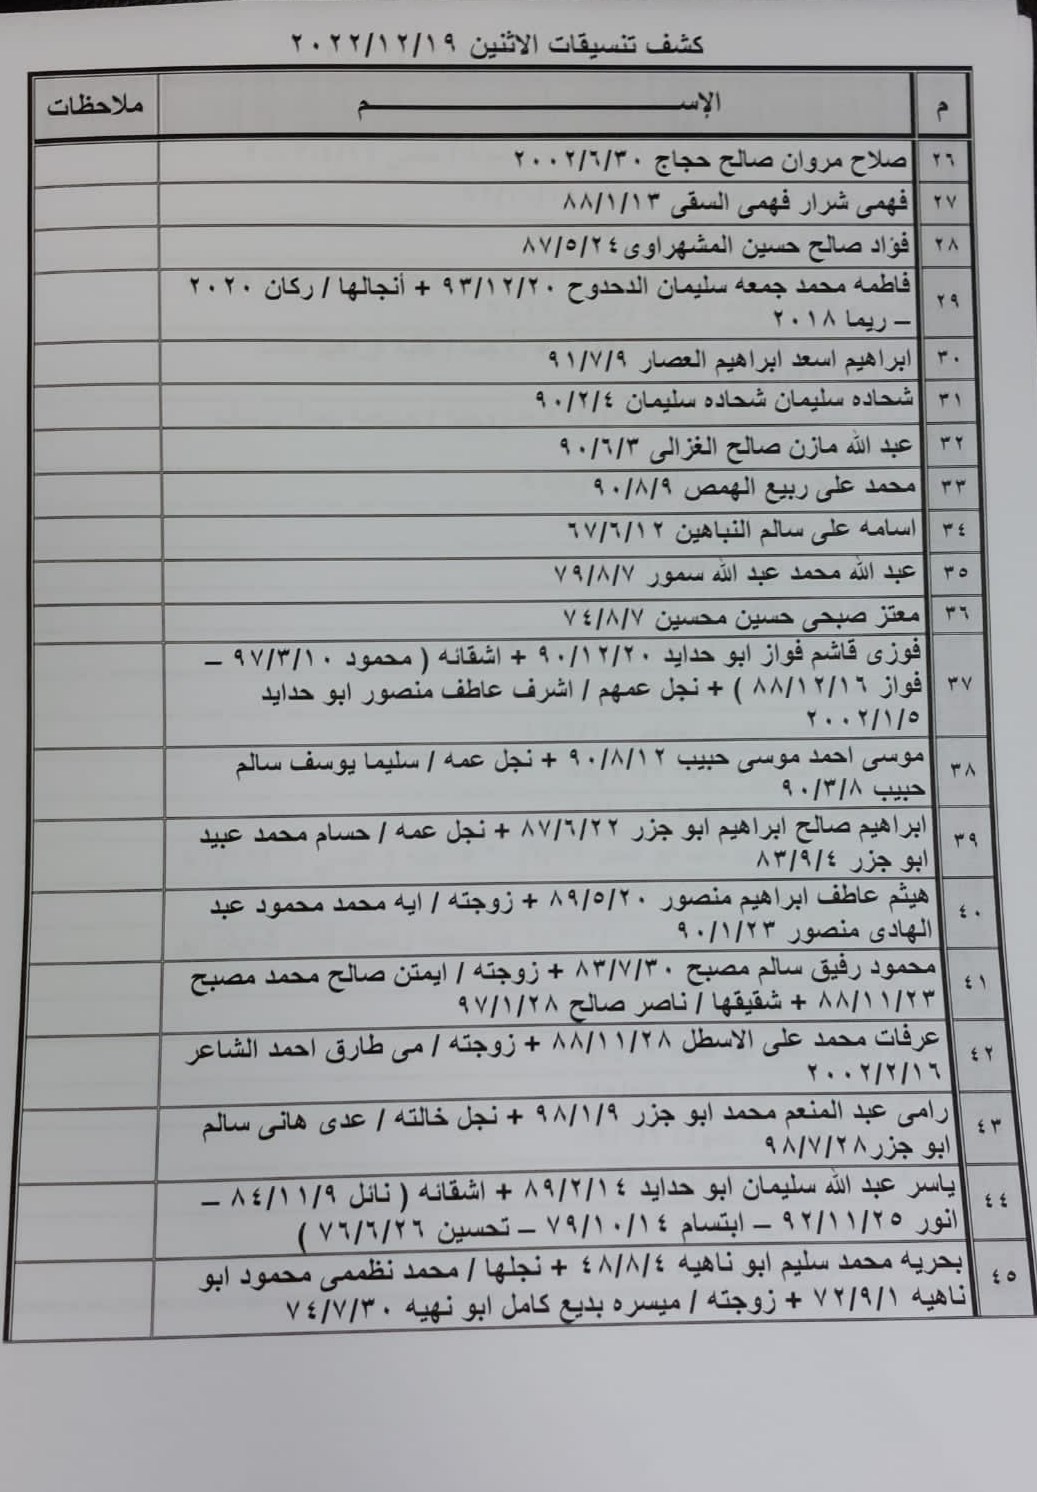 كشف تنسيقات الاثنين ٢٠٢٢/١٢/١٩
م الإســـــم ملاحظات
٢٦ صلاح مروان صالح حجاج ٢٠٠٢/٦/٣٠
٢٧ فهمى شرار فهمى السقى ٨٨/١/١٣
٢٨ فؤاد صالح حسين المشهراوى٨٧/٥/٢٤
٢٩ فاطمه محمد جمعه سليمان الدحدوح ٩٣/١٢/٢٠ + أنجالها / ركان ٢٠٢٠
– ريما ٢٠١٨
٣٠ ابراهيم اسعد ابراهيم العصار ٩١/٧/٩
٣١ شحاده سليمان شحاده سليمان ٩٠/٢/٤
٣٢ عبد الله مازن صالح الغزالى ٩٠/٦/٣
٣٣ محمد على ربيع الهمص ٩٠/٨/٩
٣٤ اسامه على سالم النباهين ٦٧/٦/١٢
٣٥ عبد الله محمد عبد الله سمور ٧٩/٨/٧
٣٦ معتز صبحى حسين محسين ٧٤/٨/٧
٣٧ فوزى قاشم فواز ابو حدايد ٩٠/١٢/٢٠ + اشقائه ( محمود ٩٧/٣/١٠ –
فواز ٨٨/١٢/١٦ ) + نجل عمهم / اشرف عاطف منصور ابو حدايد
٢٠٠٢/١/٥
٣٨ موسى احمد موسى حبيب ٩٠/٨/١٢ + نجل عمه / سليما يوسف سالم
حبيب ٩٠/٣/٨
٣٩ ابراهيم صالح ابراهيم ابو جزر ٨٧/٦/٢٢ + نجل عمه / حسام محمد عبيد
ابو جزر ٨٣/٩/٤
٤٠ هيثم عاطف ابراهيم منصور ٨٩/٥/٢٠ + زوجته / ايه محمد محمود عبد
الهادى منصور ٩٠/١/٢٣
٤١ محمود رفيق سالم مصبح ٨٣/٧/٣٠ + زوجته / ايمتن صالح محمد مصبح
٨٨/١١/٢٣ + شقيقها / ناصر صالح ٩٧/١/٢٨
٤٢ عرفات محمد على الاسطل ٨٨/١١/٢٨ + زوجته / مى طارق احمد الشاعر
٢٠٠٢/٢/١٦
٤٣ رامى عبد المنعم محمد ابو جزر ٩٨/١/٩ + نجل خالته / عدى هانى سالم
ابو جزر٩٨/٧/٢٨
٤٤ ياسر عبد الله سليمان ابو حدايد ٨٩/٢/١٤ + اشقائه ( نائل ٨٤/١١/٩ –
انور ٩٢/١١/٢٥ – ابتسام ٧٩/١٠/١٤ – تحسين ٧٦/٦/٢٦ )
٤٥ بحريه محمد سليم ابو ناهيه ٤٨/٨/٤ + نجلها / محمد نظممى محمود ابو
ناهيه ٧٢/٩/١ + زوجته / ميسره بديع كامل ابو نهيه ٧٤/٧/٣٠